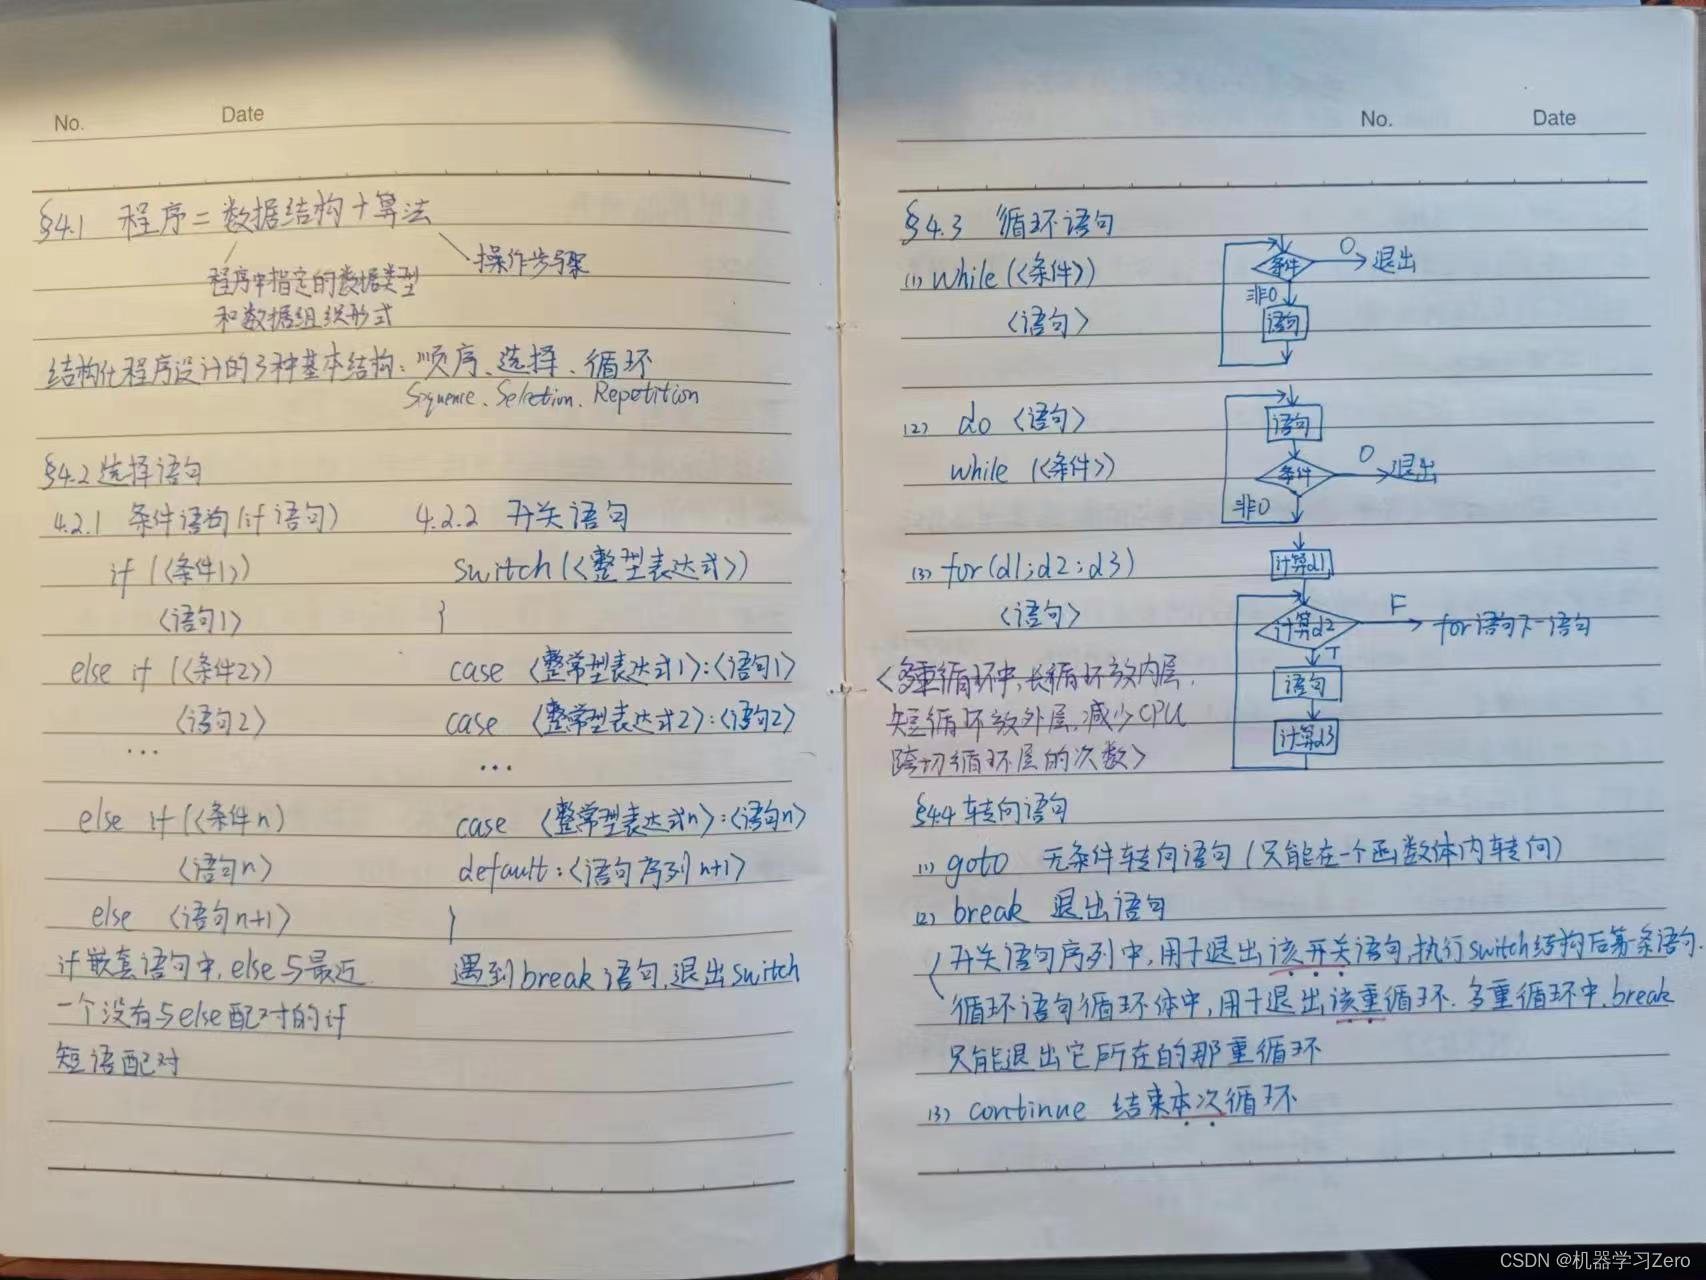 No. Date
§4.1 程序=数据结构+算法
操作步骤
程序中指定的数据类型
和数据组织形式
结构化程序设计的3种基本结构:顺序、选择、循环
Sequence、Selection、Repetition
§4.2 选择语句
4.2.1 条件语句(if语句)
if(<条件1>)
<语句1>
else if(<条件2>)
<语句2>
...
else if(<条件n)
<语句n>
else <语句n+1>
if嵌套语句中,else与最近
一个没有与else配对的if
短语配对
4.2.2 开关语句
switch(<整型表达式>)
{
case <整常型表达式1>:<语句1>
case <整常型表达式2>:<语句2>
...
case <整常型表达式n>:<语句n>
default:<语句序列n+1>
}
遇到break语句,退出switch
No. Date
§4.3 循环语句
(1) while(<条件>)
<语句>
条件
0
退出
非0
语句
(2) do <语句>
while (<条件>)
语句
条件
0
退出
非0
(3) for(d1;d2;d3)
<语句>
计算d1
计算d2
F
for语句下一语句
T
语句
计算d3
<多重循环中,长循环放内层,
短循环放外层,减少CPU
跨切循环层的次数>
§4.4 转向语句
(1) goto 无条件转向语句(只能在一个函数体内转向)
(2) break 退出语句
开关语句序列中,用于退出该开关语句,执行switch结构后第一条语句.
循环语句循环体中,用于退出该重循环.多重循环中,break
只能退出它所在的那重循环
(3) continue 结束本次循环
CSDN @机器学习Zero